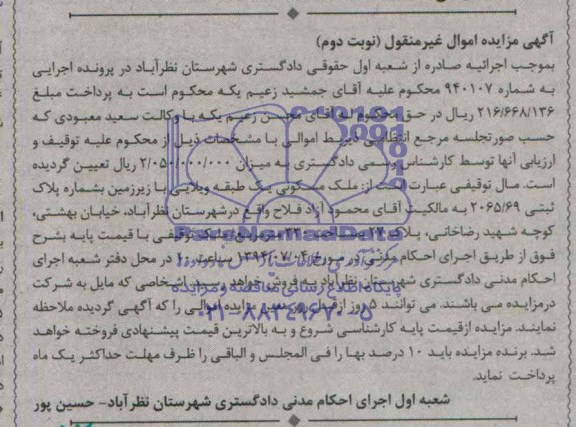 آگهی مزایده اموال غیرمنقول (نوبت دوم)
بموجب اجرائیه صادره از شعبه اول حقوقی دادگستری شهرستان نظرآباد در پرونده اجرایی
به شماره ۹۴۰۱۰۷ محکوم علیه آقای جمشید زعیم یکه محکوم است به پرداخت مبلغ
۲۱۶/۶۶۸/۱۳۶ ریال در حق محکوم له آقای محسن زعیم یکه با وکالت سعید معبودی که
حسب صورتجلسه مرجع انتظامی ذیربط اموالی با مشخصات ذیل از محکوم علیه توقیف و
ارزیابی آنها توسط کارشناس رسمی دادگستری به میزان ۲/۰۵۰/۰۰۰/۰۰۰ ریال تعیین گردیده
است. مال توقیفی عبارت است از: ملک مسکونی یک طبقه ویلایی با زیرزمین بشماره پلاک
ثبتی ۲۰۶۵/۶۹ به مالکیت آقای محمود آزاد فلاح واقع درشهرستان نظرآباد، خیابان بهشتی،
کوچه شهید رضاخانی، پلاک ۲۷ توقیفی با قیمت پایه بشرح
فوق از طریق اجرای احکام مدنی در مورخ در محل دفتر شعبه اجرای
احکام مدنی دادگستری شهرستان نظرآباد به فروش خواهد رسید. اشخاصی که مایل به شرکت
درمزایده می باشند. می توانند ۵ روز از اموالی را که آگهی گردیده ملاحظه
نمایند. مزایده ازقیمت پایه کارشناسی شروع و به بالاترین قیمت پیشنهادی فروخته خواهد
شد. برنده مزایده باید ۱۰ درصد بها را فی المجلس و الباقی را ظرف مهلت حداکثر یک ماه
پرداخت نماید.
شعبه اول اجرای احکام مدنی دادگستری شهرستان نظرآباد- حسین پور
ParsNamadData
پایگاه اطلاع رسانی مناقصه و مزایده
۰۲۱-۸۸۳۴۹۶۷۰